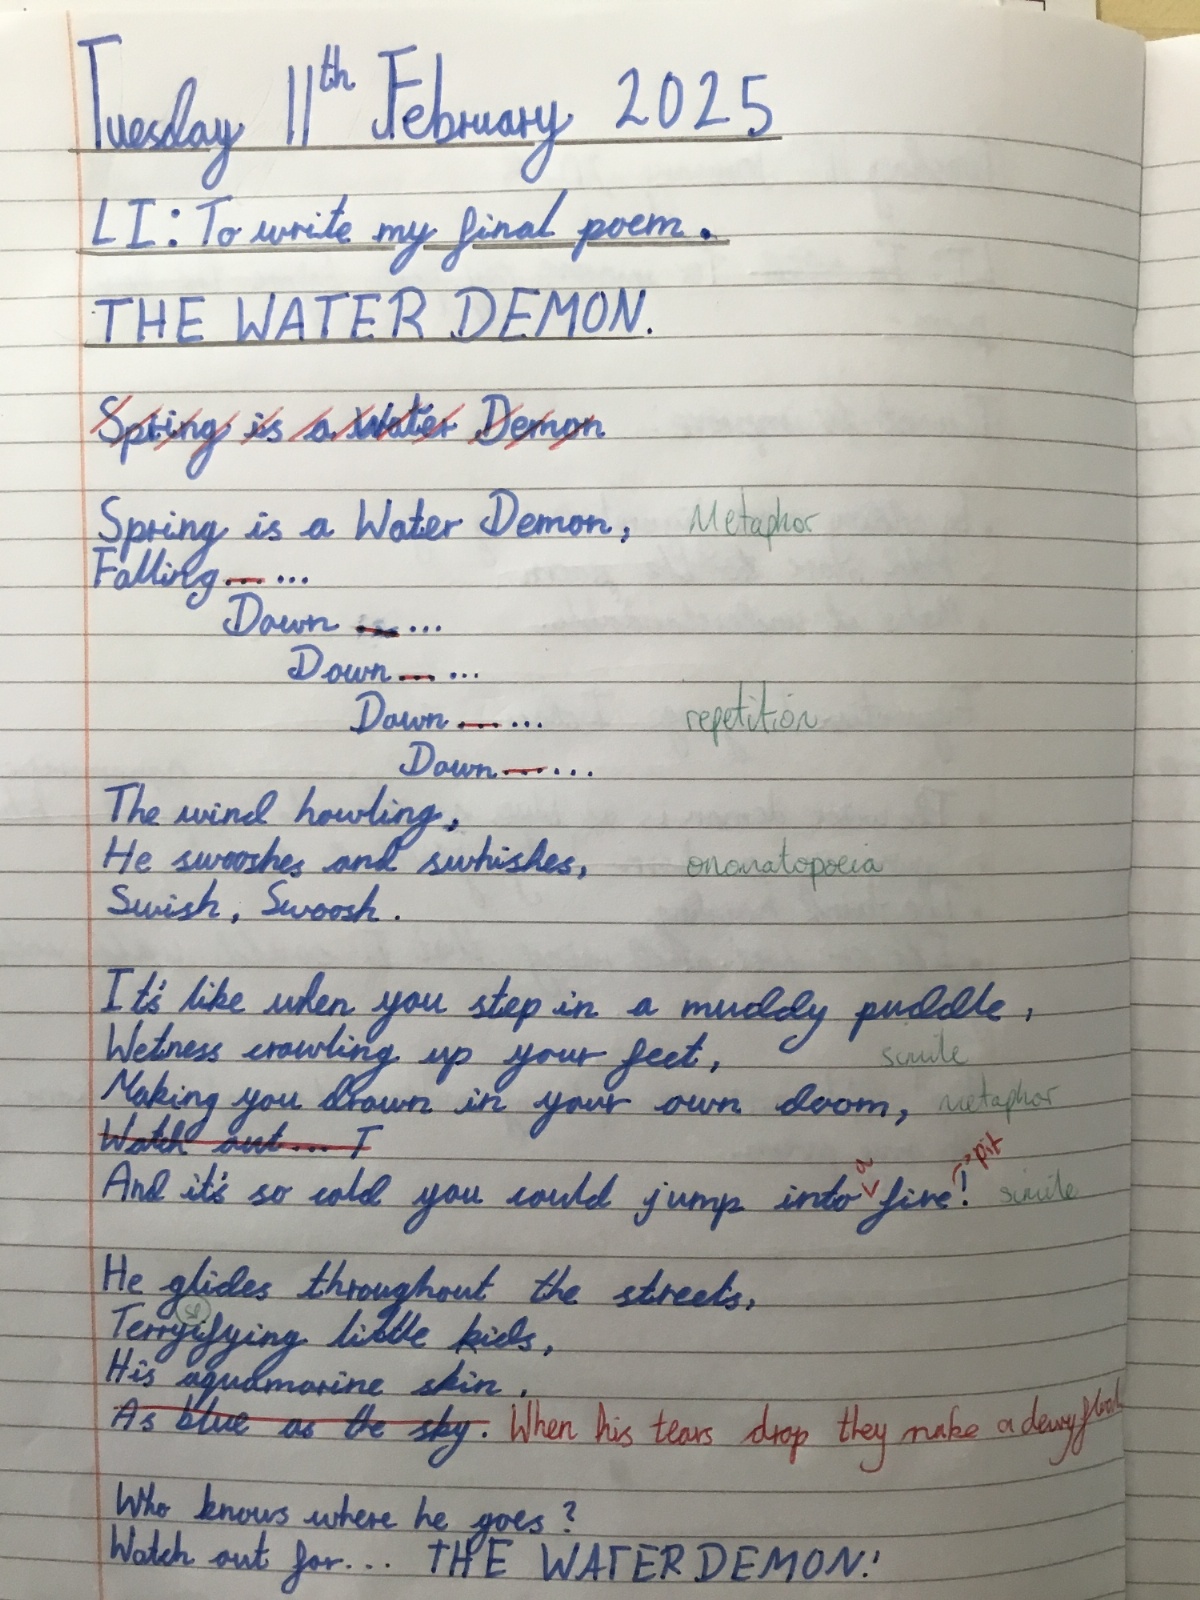 Tuesday 11th February 2025
LI: To write my final poem.
THE WATER DEMON.
Spring is a Water Demon
Spring is a Water Demon, Metaphor
Falling... ...
Down ... ...
Down ... ...
Down ... ... repetition
Down ... ...
The wind howling,
He swooshes and swhishes, ononatopoeia
Swish, Swoosh.
It's like when you step in a muddy puddle,
Wetness crawling up your feet, simile
Making you drown in your own doom, metaphor
Watch out... T
And it's so cold you could jump into a fire! pit simile
He glides throughout the streets,
sp
Terryifying little kids,
His aquamarine skin,
As blue as the sky. When his tears drop they make a dewy flood
Who knows where he goes?
Watch out for... THE WATER DEMON!